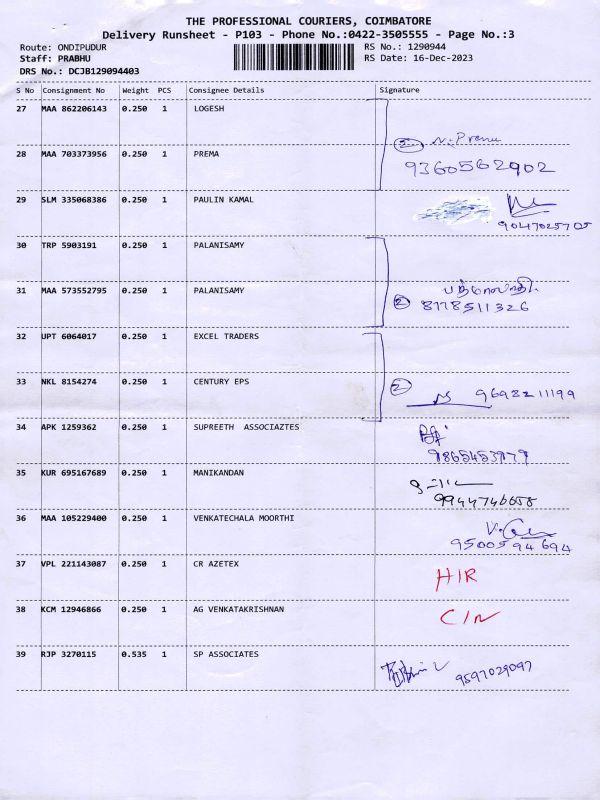 THE PROFESSIONAL COURIERS, COIMBATORE
Delivery Runsheet - P103 - Phone No.:0422-3505555 - Page No.:3
Route: ONDIPUDUR RS No.: 1290944
Staff: PRABHU RS Date: 16-Dec-2023
DRS No.: DCJB129094403
S No Consignment No Weight PCS Consignee Details Signature
27 MAA 862206143 0.250 1 LOGESH
2 N. Prema
28 MAA 703373956 0.250 1 PREMA 9360562902
29 SLM 335068386 0.250 1 PAULIN KAMAL
9047025705
30 TRP 5903191 0.250 1 PALANISAMY
31 MAA 573552795 0.250 1 PALANISAMY
2 8778511326
32 UPT 6064017 0.250 1 EXCEL TRADERS
33 NKL 8154274 0.250 1 CENTURY EPS 2 9698211199
34 APK 1259362 0.250 1 SUPREETH ASSOCIAZTES
9865453979
35 KUR 695167689 0.250 1 MANIKANDAN
9944746658
36 MAA 105229400 0.250 1 VENKATECHALA MOORTHI
9500594694
37 VPL 221143087 0.250 1 CR AZETEX HIR
38 KCM 12946866 0.250 1 AG VENKATAKRISHNAN C/N
39 RJP 3270115 0.535 1 SP ASSOCIATES
9597029097